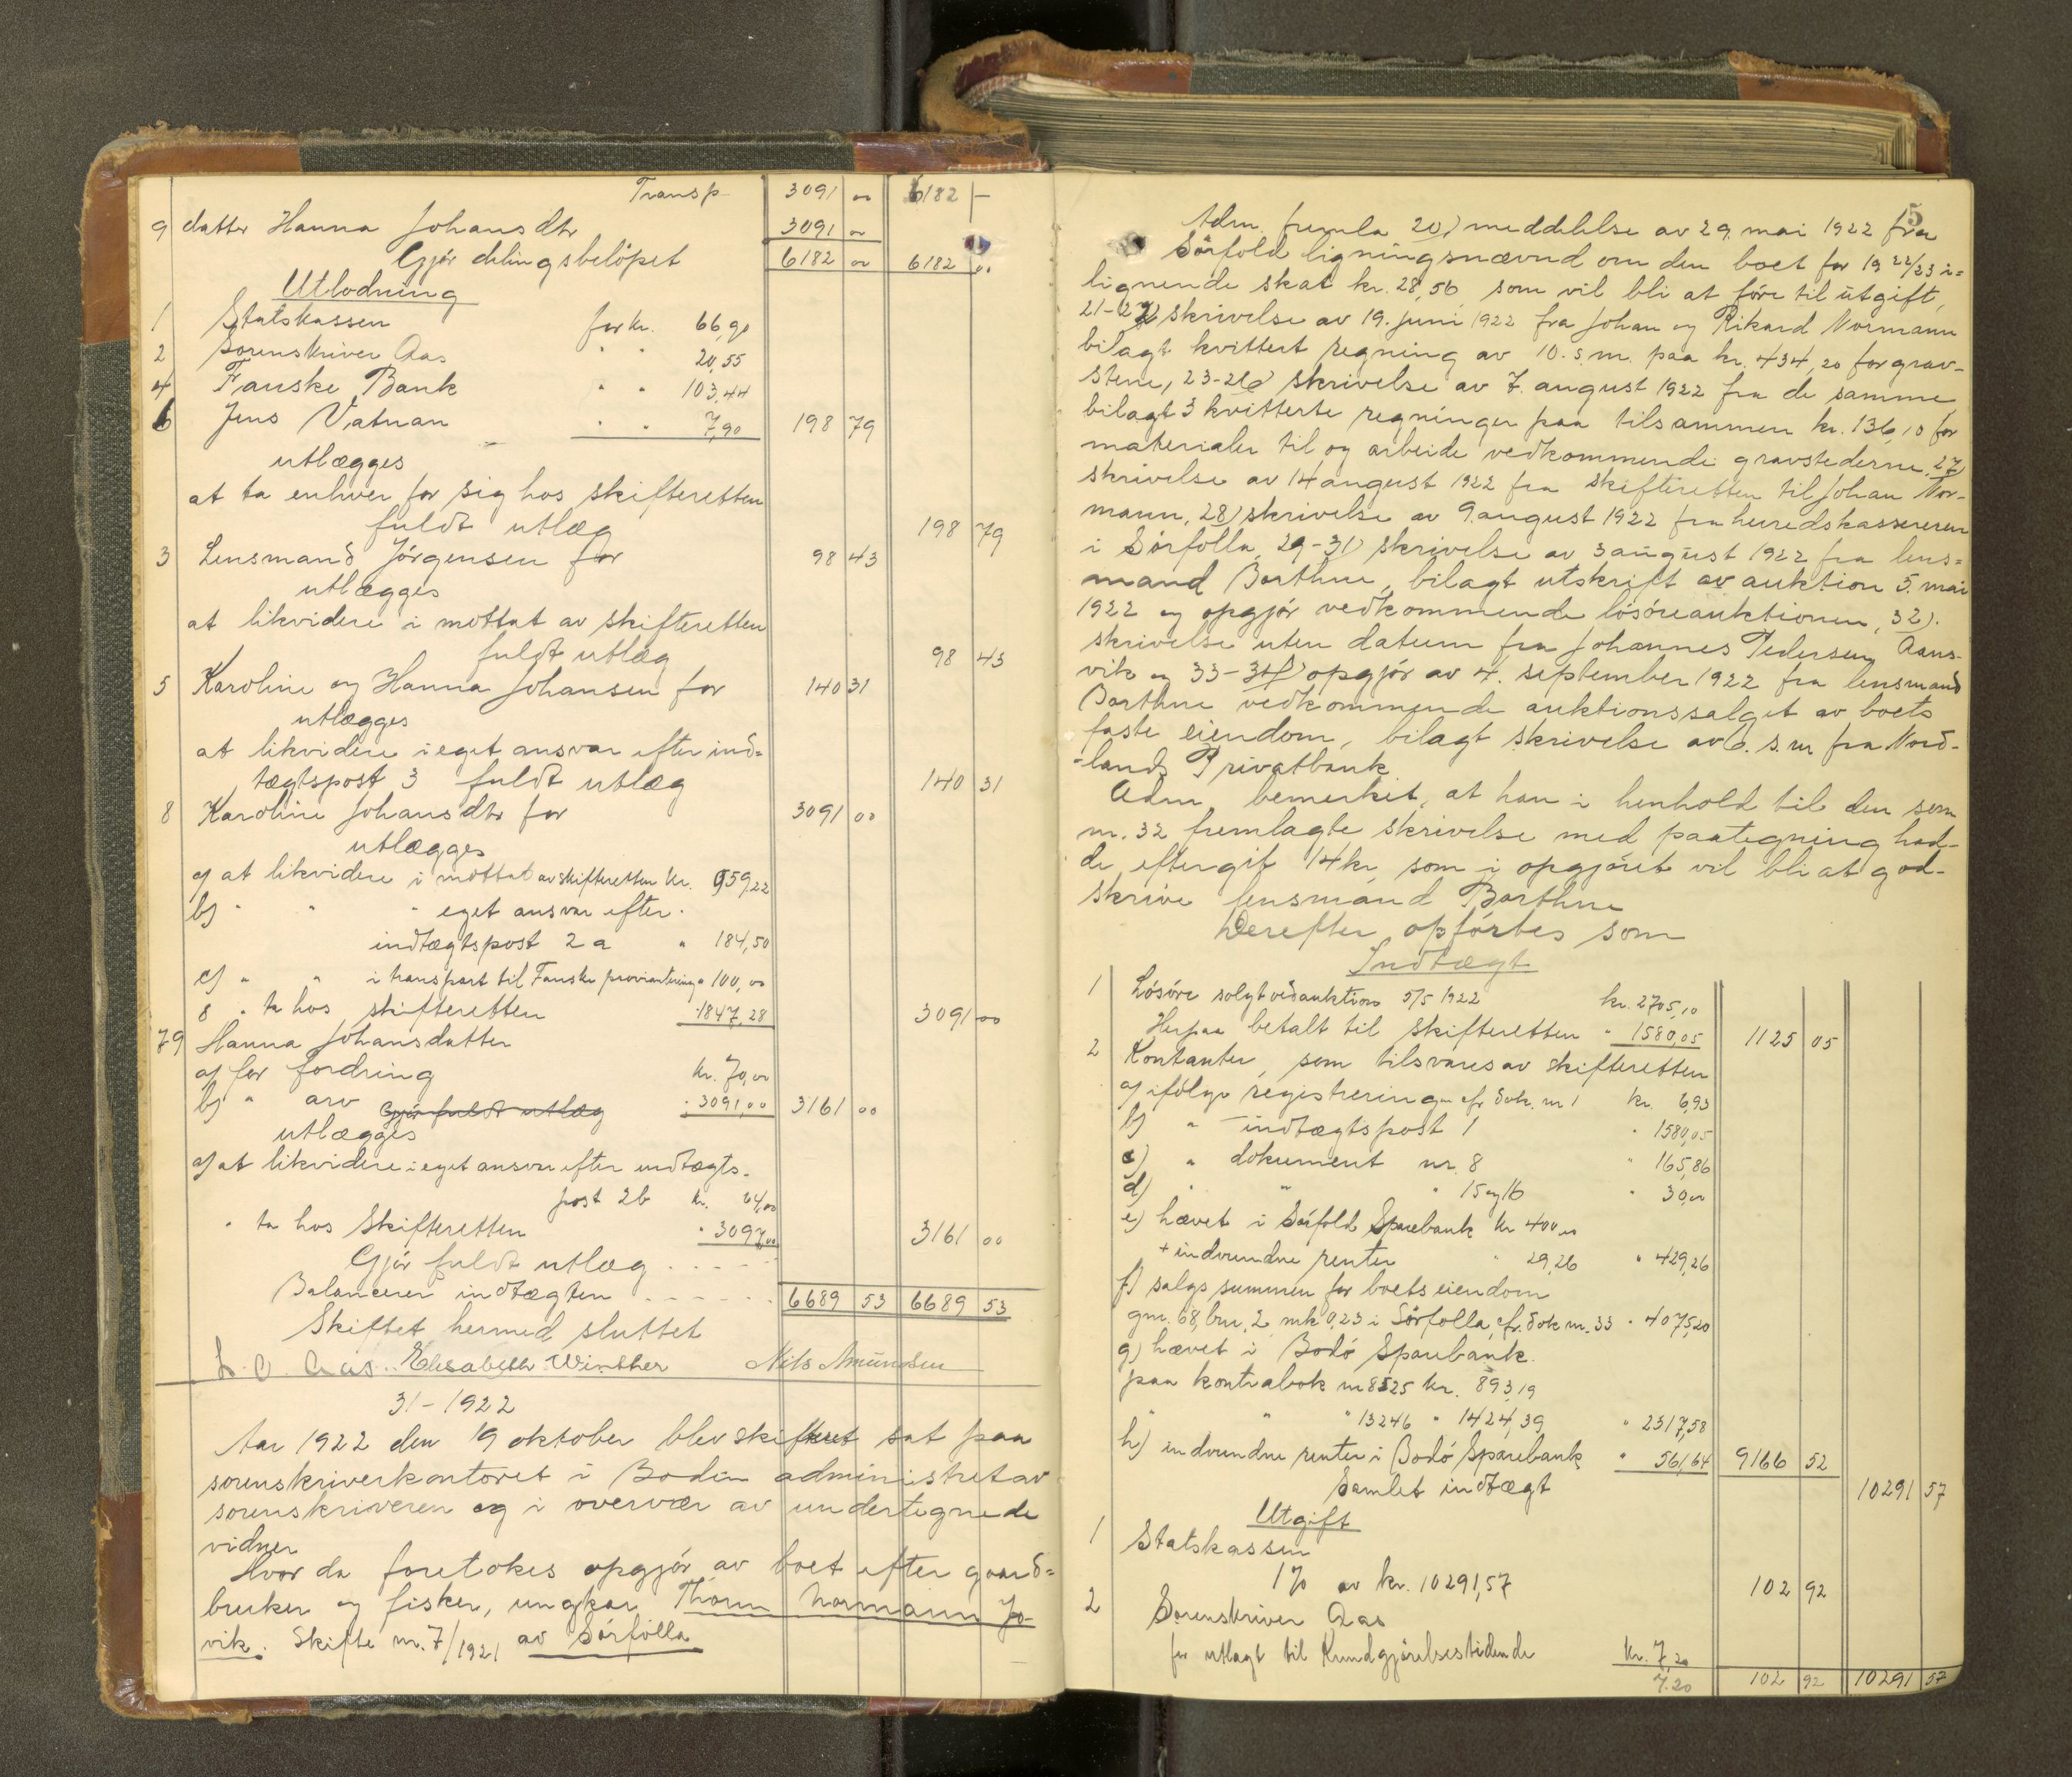 Transp 3091 00 6182 —
9 datter Hanna Johansdtr 3091 00
Gjør delingsbeløpet 6182 00 6182 00
Utlodning
1 Statskassen for kr. 66,90
2 Sorenskriver Aas " " 20,55
4 Fauske Bank " " 103,44
6 Jens Vatnan " " 7,90 198 79
utlægges
at ta enhver for sig hos skifteretten
fuldt utlæg 198 79
3 Lensmand Jørgensen for 98 43
utlægges
at likvidere i mottat av skifteretten
fuldt utlæg 98 43
5 Karoline og Hanna Johansen for 140 31
utlægges
at likvidere i eget ansvar efter ind=
tægtspost 3 fuldt utlæg 140 31
8 Karoline Johansdtr for 3091 00
utlægges
a) at likvidere i mottat av skifteretten kr. 959,22
b) " " " eget ansvar efter
indtægtspost 2a " 184,50
c) " " i transport til Fauske proviantering " 100,00
8 " ta hos skifteretten " 1847,28 3091 00
79 Hanna Johansdatter
a) for fordring kr. 70,00
b) " arv Gjør fuldt utlæg " 3091,00 3161 00
utlægges
a) at likvidere i eget ansvar efter indtægts-
post 2b kr. 64,00
" ta hos skifteretten " 3097,00 3161 00
Gjør fuldt utlæg . . . . .
Balancerer indtægten . . . . . . 6689 53 6689 53
Skiftet hermed sluttet
L. O. Aas. Elisabeth Winther Nils Amundsen
31 - 1922
Aar 1922 den 19 oktober blev skifteret sat paa
sorenskriverkontoret i Bodin administret av
sorenskriveren og i overvær av undertegnede
vidner
Hvor da foretokes opgjør av boet efter gaard=
bruker og fisker, ungkar Thorn Normann Jo-
vik. Skifte nr. 7/1921 av Sørfolla
5
Adm. fremla 20) meddelelse av 29. mai 1922 fra
Sørfold ligningsnævnd om den boet for 1922/23 i=
lignende skat kr. 28,56 som vil bli at føre til utgift,
21-22) skrivelse av 19. juni 1922 fra Johan og Rikard Normann
bilagt kvittert regning av 10. s.m. paa kr. 434,20 for grav-
stene, 23-26) skrivelse av 7. august 1922 fra de samme
bilagt 3 kvitterte regninger paa tilsammen kr. 136,10 for
materialer til og arbeide vedkommende gravstederne, 27)
skrivelse av 14 august 1922 fra skifteretten til Johan Nor-
mann, 28) skrivelse av 9. august 1922 fra herredskassereren
i Sørfolla, 29-31) skrivelse av 3 august 1922 fra lens=
mand Barthne, bilagt utskrift av auktion 5. mai
1922 og opgjør vedkommende løsøreauktionen, 32).
skrivelse uten datum fra Johannes Pedersen Aans-
vik og 33-34) opgjør av 4. september 1922 fra lensmand
Barthne vedkommende auktionssalget av boets
faste eiendom, bilagt skrivelse av 6. s.m. fra Nord-
-lands Privatbank.
Adm. bemerket, at han i henhold til den som
nr. 32 fremlagte skrivelse med paategning had-
de eftergit 14 kr, som i opgjøret vil bli at god-
skrive lensmand Barthne
Derefter opførtes som
Indtægt
1 Løsøre solgt ved auktion 5/5 1922 kr. 2705,10
Herpaa betalt til skifteretten " 1580,05 1125 05
2 Kontanter, som tilsvares av skifteretten
a) ifølge registrering cfr. dok. nr 1 kr. 6,93
b) " indtægtspost 1 " 1580,05
c) " dokument nr. 8 " 165,86
d) " " " 15 og 16 " 30,00
e) hævet i Sørfold Sparebank kr 400,00
+ indvundne renter " 29,26 " 429,26
f) salgssummen for boets eiendom
gnr. 68, brn. 2 mk 0,23 i Sørfolla, cfr. dok nr. 33 " 4075,20
g) hævet i Bodø Sparebank
paa kontrabok nr 8525 kr. 893,19
" " " 13246 " 1424,39 " 2317,58
h) indvundne renter i Bodø Sparebank " 561,64 9166 52
Samlet indtægt 10291 57
Utgift
1 Statskassen
1% av kr. 10291,57 102 92
2 Sorenskriver Aas
for utlagt til Kundgjørelsestidende kr. 7,20
7.20 102 92 10291 57